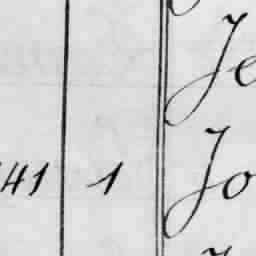 Je
41 1 Jo